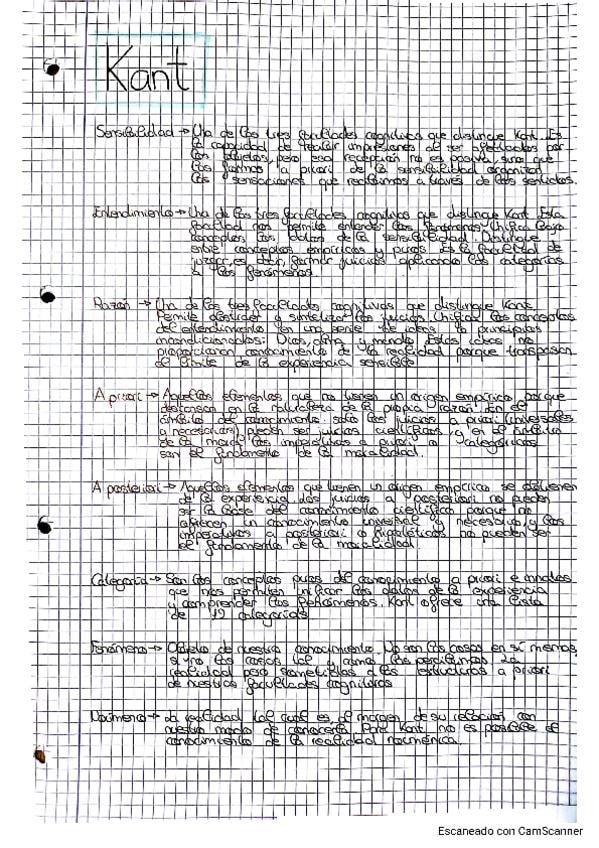 Kant
Sensibilidad → Una de las tres facultades cognitivas que distingue Kant. Es
la capacidad de recibir impresiones de ser afectados por
los objetos, pero esa recepción no es pasiva, sino que
las formas a priori de la sensibilidad organizan
las sensaciones que recibimos a través de los sentidos.
Entendimiento → Una de las tres facultades cognitivas que distingue Kant. Esta
facultad nos permite entender los fenómenos. Unifica bajo
conceptos los datos de la sensibilidad. Distingue
entre conceptos empíricos y puros. Es la facultad de
juzgar, es decir, formar juicios aplicando las categorías
a los fenómenos.
Razón → Una de las tres facultades cognitivas que distingue Kant.
Permite y sintetizar los juicios. Unifica los conceptos
del entendimiento en una serie de ideas o principios
incondicionados: Dios, alma y mundo. Estas ideas no
proporcionan conocimiento de la realidad porque traspasan
el límite de la experiencia sensible.
A priori → Aquellos elementos que no tienen un origen empírico porque
descansan en la naturaleza de la propia razón. En el
ámbito del conocimiento solo los juicios a priori (universales
y necesarios) pueden ser juicios científicos y en el ámbito
de la moral los imperativos a priori o categóricos
son el fundamento de la moralidad.
A posteriori → Aquellos elementos que tienen un origen empírico se obtienen
de la experiencia. Los juicios a posteriori no pueden
ser la base del conocimiento científico porque no
ofrecen un conocimiento universal y necesario y los
imperativos a posteriori o hipotéticos no pueden ser
el fundamento de la moralidad.
Categoría → Son los conceptos puros del conocimiento a priori e innatos
que nos permiten unificar los datos de la experiencia
y comprender los fenómenos. Kant ofrece una lista
de 12 categorías
Fenómeno → Objeto de nuestro conocimiento. No son las cosas en sí mismas,
si no las cosas tal y como las percibimos. La
realidad pero sometidas a las estructuras a priori
de nuestras facultades cognitivas
Noúmeno → La realidad tal cual es, al margen de su relación con
nuestro modo de conocerla. Para Kant no es posible el
conocimiento de la realidad nouménica.
Escaneado con CamScanner